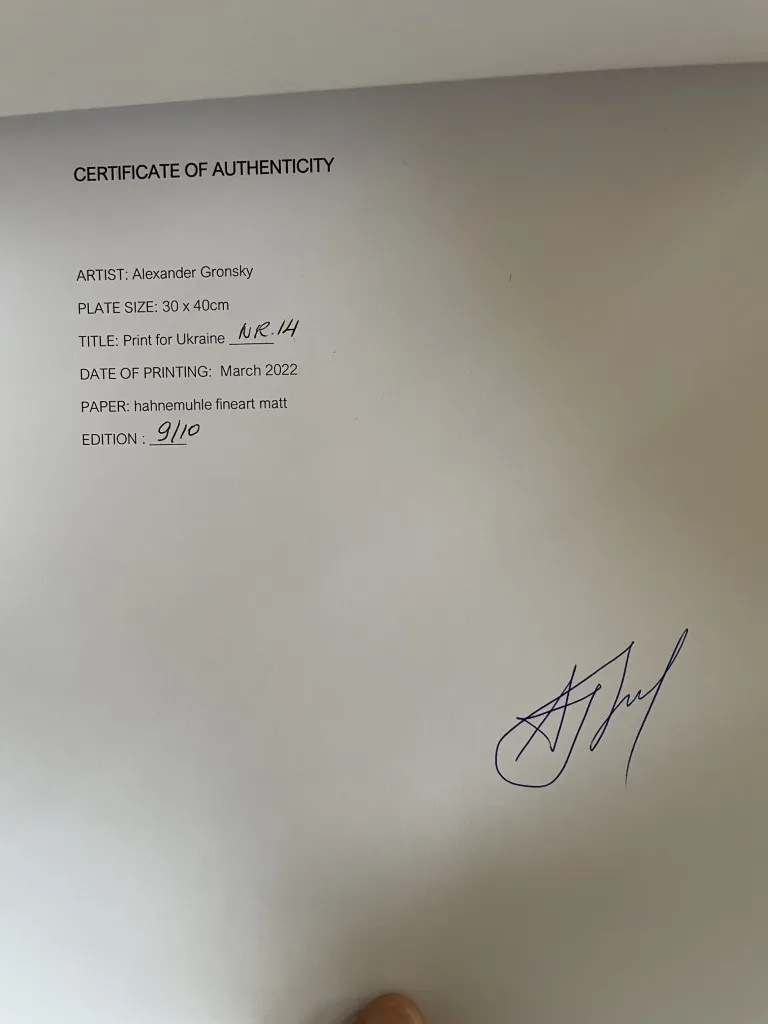 CERTIFICATE OF AUTHENTICITY
ARTIST: Alexander Gronsky
PLATE SIZE: 30 x 40cm
TITLE: Print for Ukraine NR.14
DATE OF PRINTING: March 2022
PAPER: hahnemuhle fineart matt
EDITION : 9/10